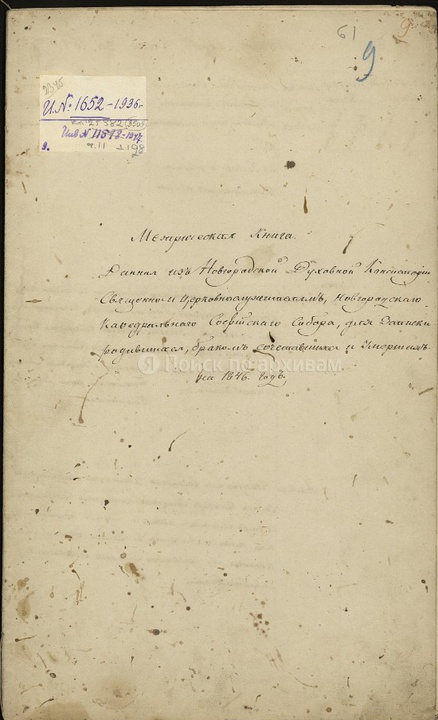 61 9
9
2395
И.№ 1652-1936.
КП 25382/3505
Инв № 11593-1977.
9.
Метрическая Книга
Данная изъ Новгородской Духовной Консисторiи
Священно и Церковнослужителямъ, Новгородскаго
Кафедральнаго Софiйскаго Собора, для Записки
родившихся, бракомъ сочетавшихся и Умершихъ
на 1846. годъ,
Я Поиск по архивам